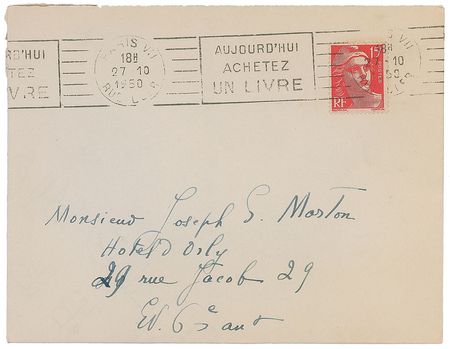 RD'HUI
TEZ
IVRE
PARIS VII
18H
27-10
1950
AUJOURD'HUI
ACHETEZ
UN LIVRE
15F
RF
18H
10
Monsieur Joseph S. Marton
Hotel d'Orly
29 rue Jacob 29